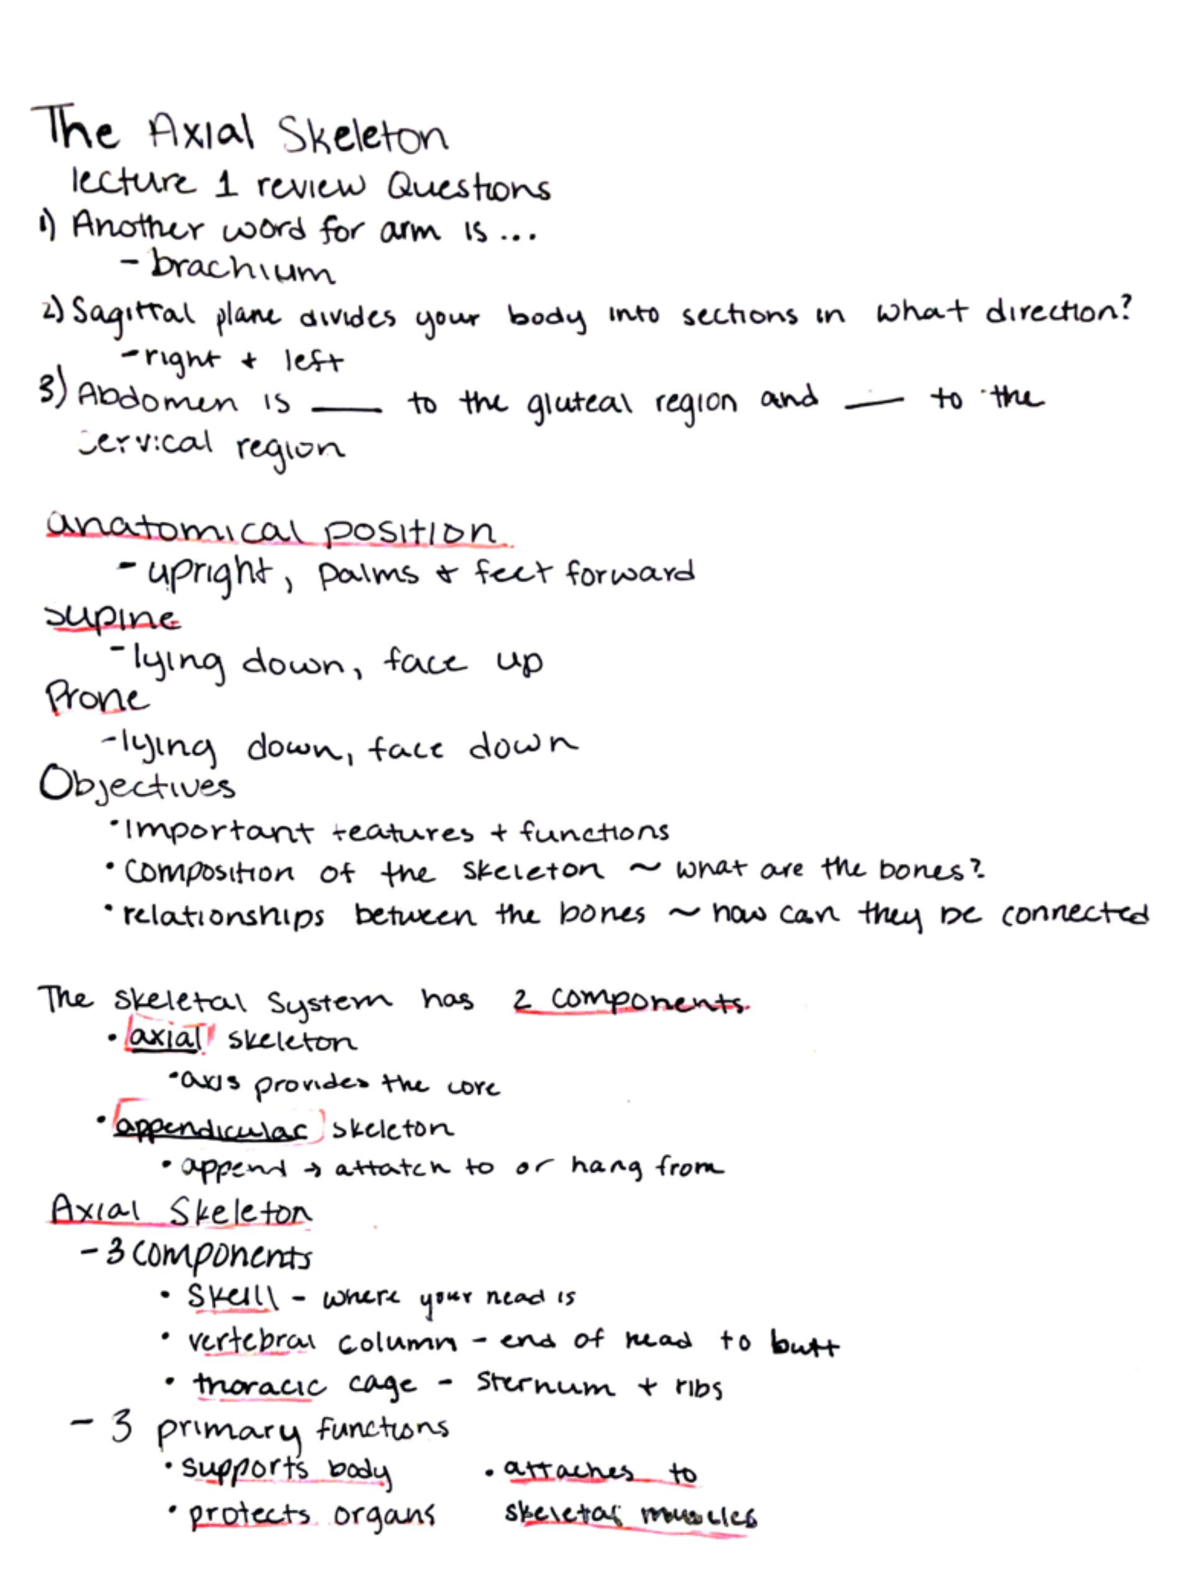 The Axial Skeleton
lecture 1 review Questions
1) Another word for arm is ...
- brachium
2) Sagittal plane divides your body into sections in what direction?
- right + left
3) Abdomen is ___ to the gluteal region and ___ to the
cervical region
anatomical position
- upright, palms + feet forward
supine
- lying down, face up
Prone
- lying down, face down
Objectives
• Important features + functions
• Composition of the skeleton ~ what are the bones?
• relationships between the bones ~ how can they be connected
The skeletal System has 2 components.
• axial skeleton
• axis provides the core
• appendicular skeleton
• append → attatch to or hang from
Axial Skeleton
- 3 components
• Skull - where your head is
• vertebral column - end of head to butt
• thoracic cage - sternum + ribs
- 3 primary functions
• supports body • attaches to
• protects organs skeletal muscles